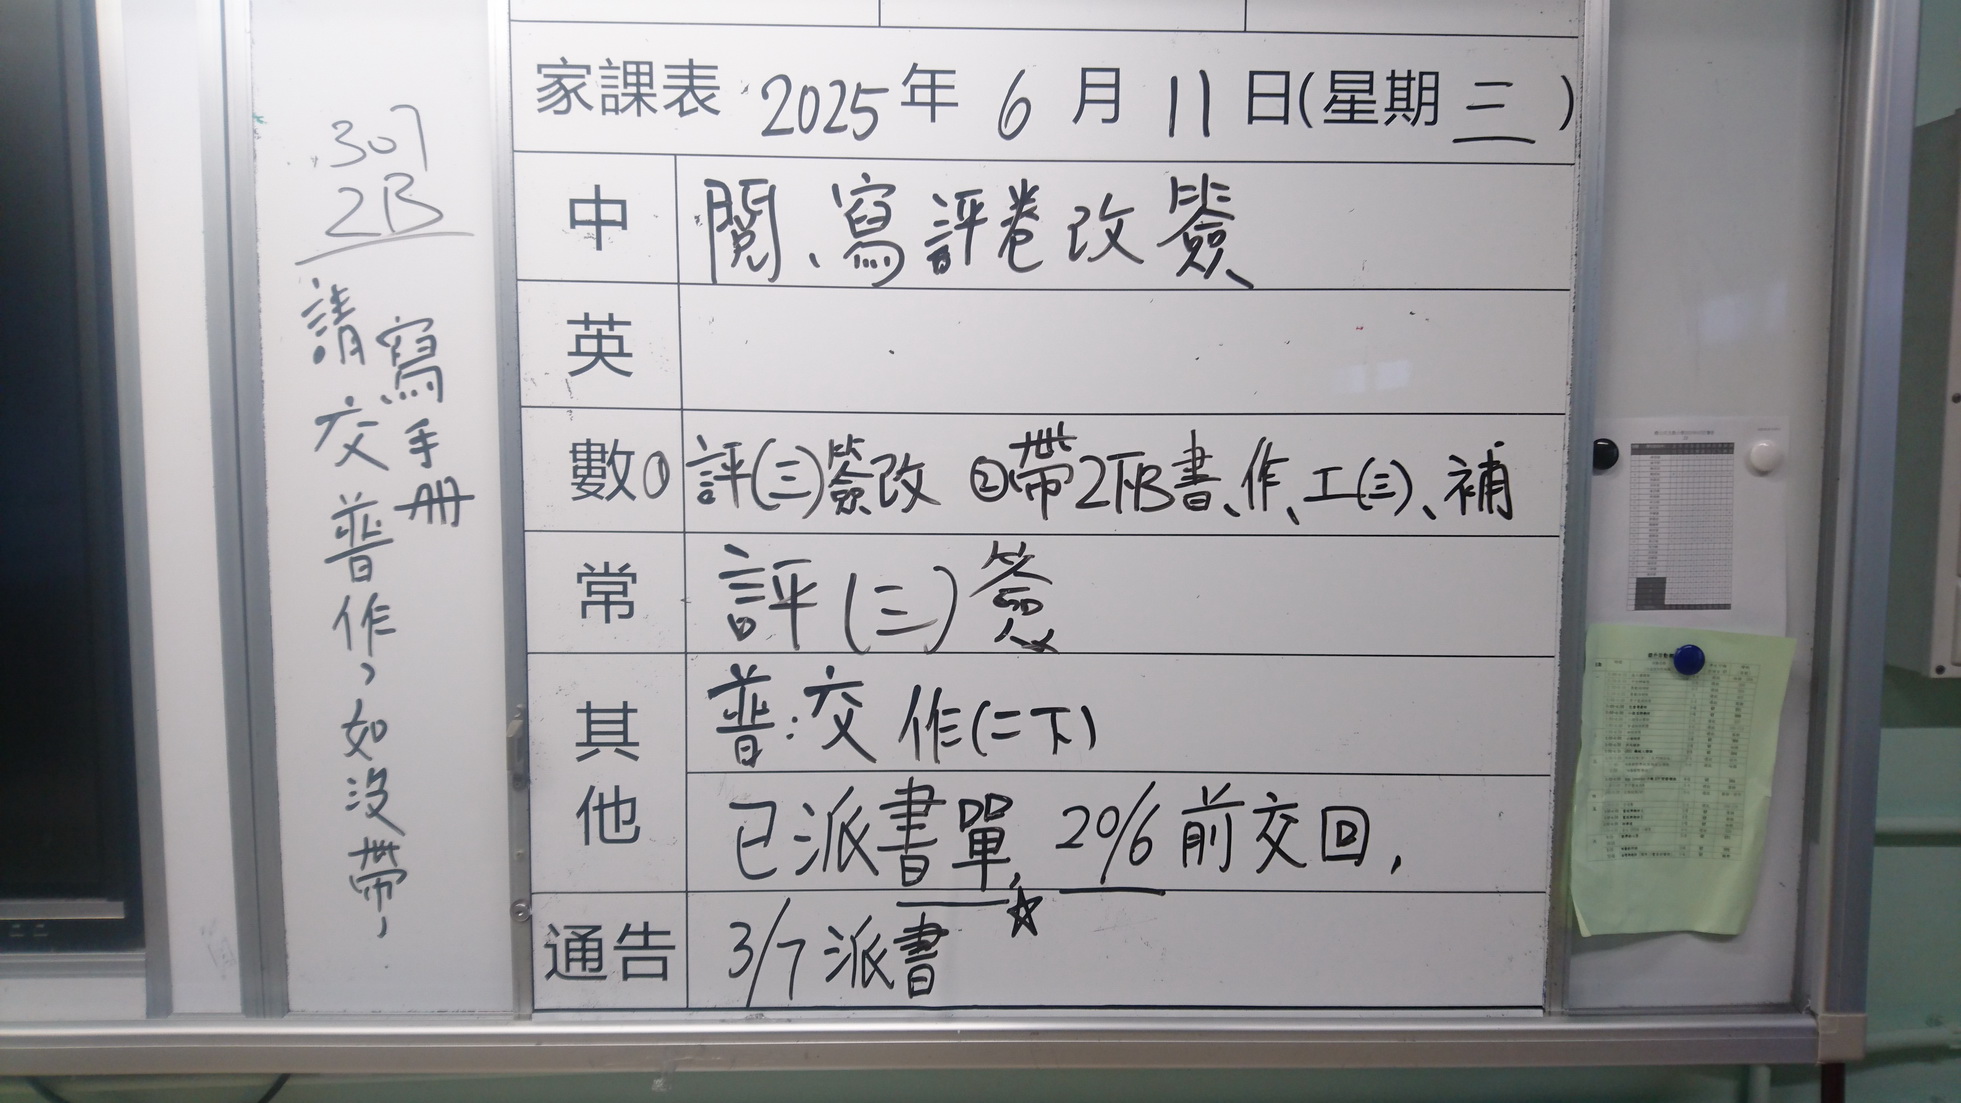 307
2B
請交普作，如沒帶，
寫手冊
家課表 2025年 6月 11日(星期三)
中 閱、寫評卷改簽
英
數 ①評(三)簽改 ②帶2下B書、作、工(三)、補
常 評(三)簽
其他 普：交作(二下)
已派書單，20/6前交回，
通告 3/7派書